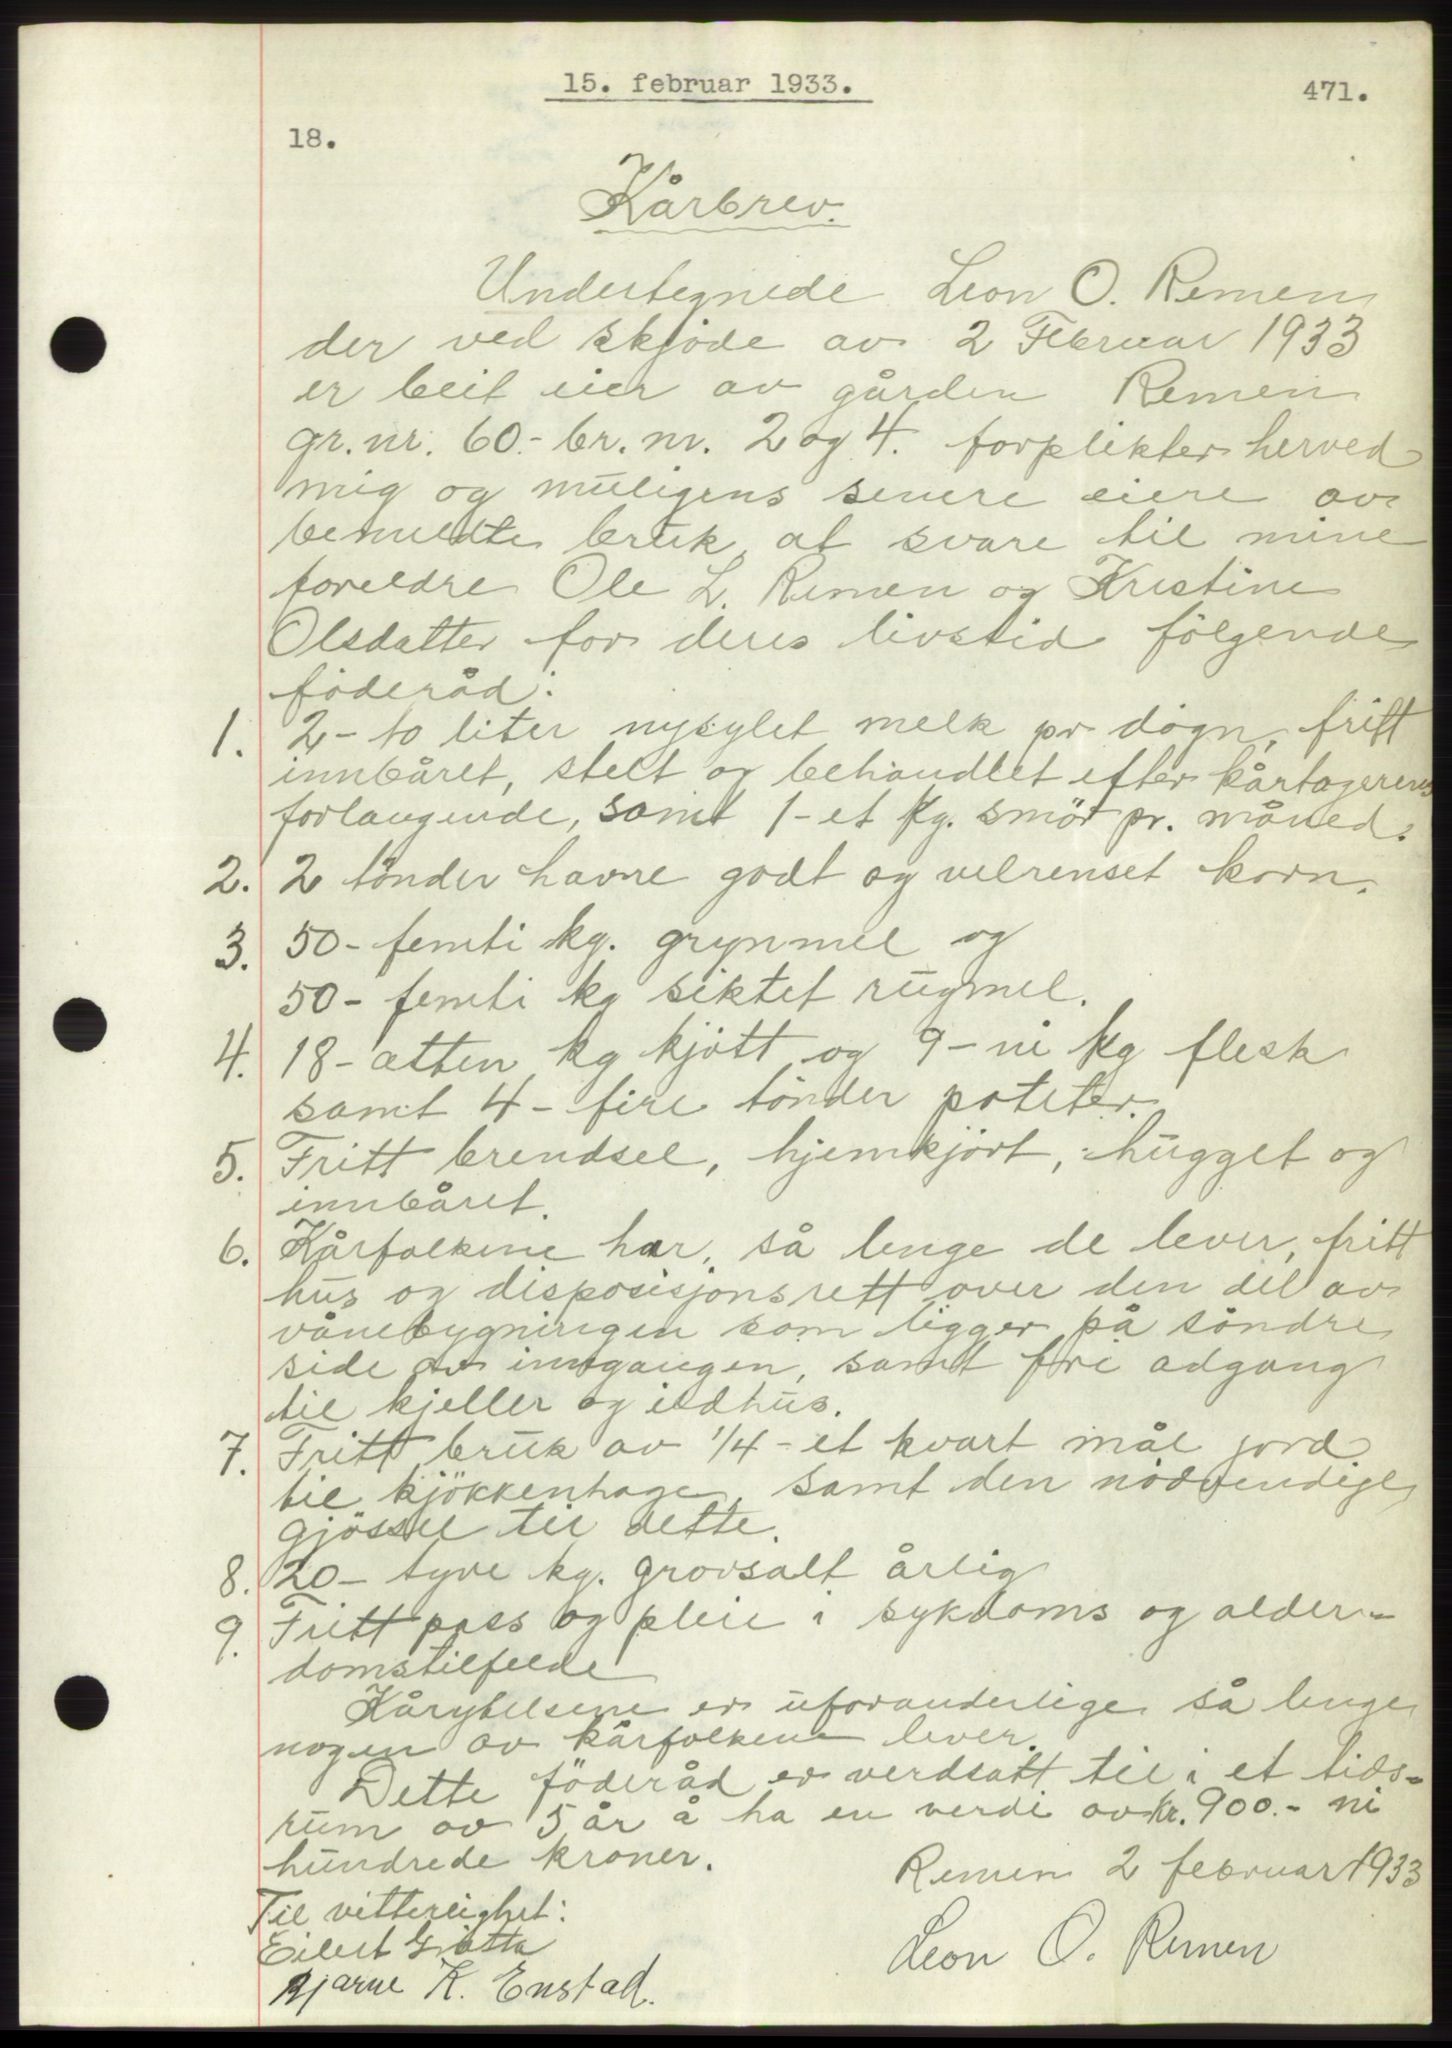 15. februar 1933.
471.
18.
Kårbrev.
Undertegnede Leon O. Remen
der ved skjöde av 2 Februar 1933
er blit eier av gården Remen
gr. nr. 60.- br. nr. 2 og 4. forplikter herved
mig og muligens senere eiere av
bemeldte bruk, at svare til mine
foreldre Ole L. Remen og Kristine
Olsdatter for deres livstid fölgende
föderåd:
1. 2- to liter nysylet melk pr dögn, fritt
innbåret, stelt og behandlet efter kårtagerens
forlangende, samt 1- et kg. smör pr. måned.
2. 2 tönder havre godt og velrenset korn.
3. 50- femti kg. grynmel og
50- femti kg siktet rugmel.
4. 18- atten kg kjött og 9- ni kg flesk
samt 4- fire tönder poteter.
5. Fritt brendsel, hjemkjört, hugget og
innbåret.
6. Kårfolkene har, så lenge de lever, fritt
hus og disposisjonsrett over den del av
vånebygningen som ligger på söndre
side av inngangen, samt fri adgang
til kjeller og ildhus.
7. Fritt bruk av 1/4- et kvart mål jord
til kjökkenhage, samt den nödvendige
gjössel til dette.
8. 20- tyve kg. grovsalt årlig
9. Fritt pass og pleie i sykdoms og alder-
domstilfelde
Kårytelsene er uforanderlige så lenge
nogen av kårfolkene lever.
Dette föderåd er verdsatt til i et tids-
rum av 5 år å ha en verdi av kr. 900.- ni
hundrede kroner.
Remen 2 februar 1933
Til vitterlighet:
Eilert
Leon O. Remen
Bjarne K. Enstad.